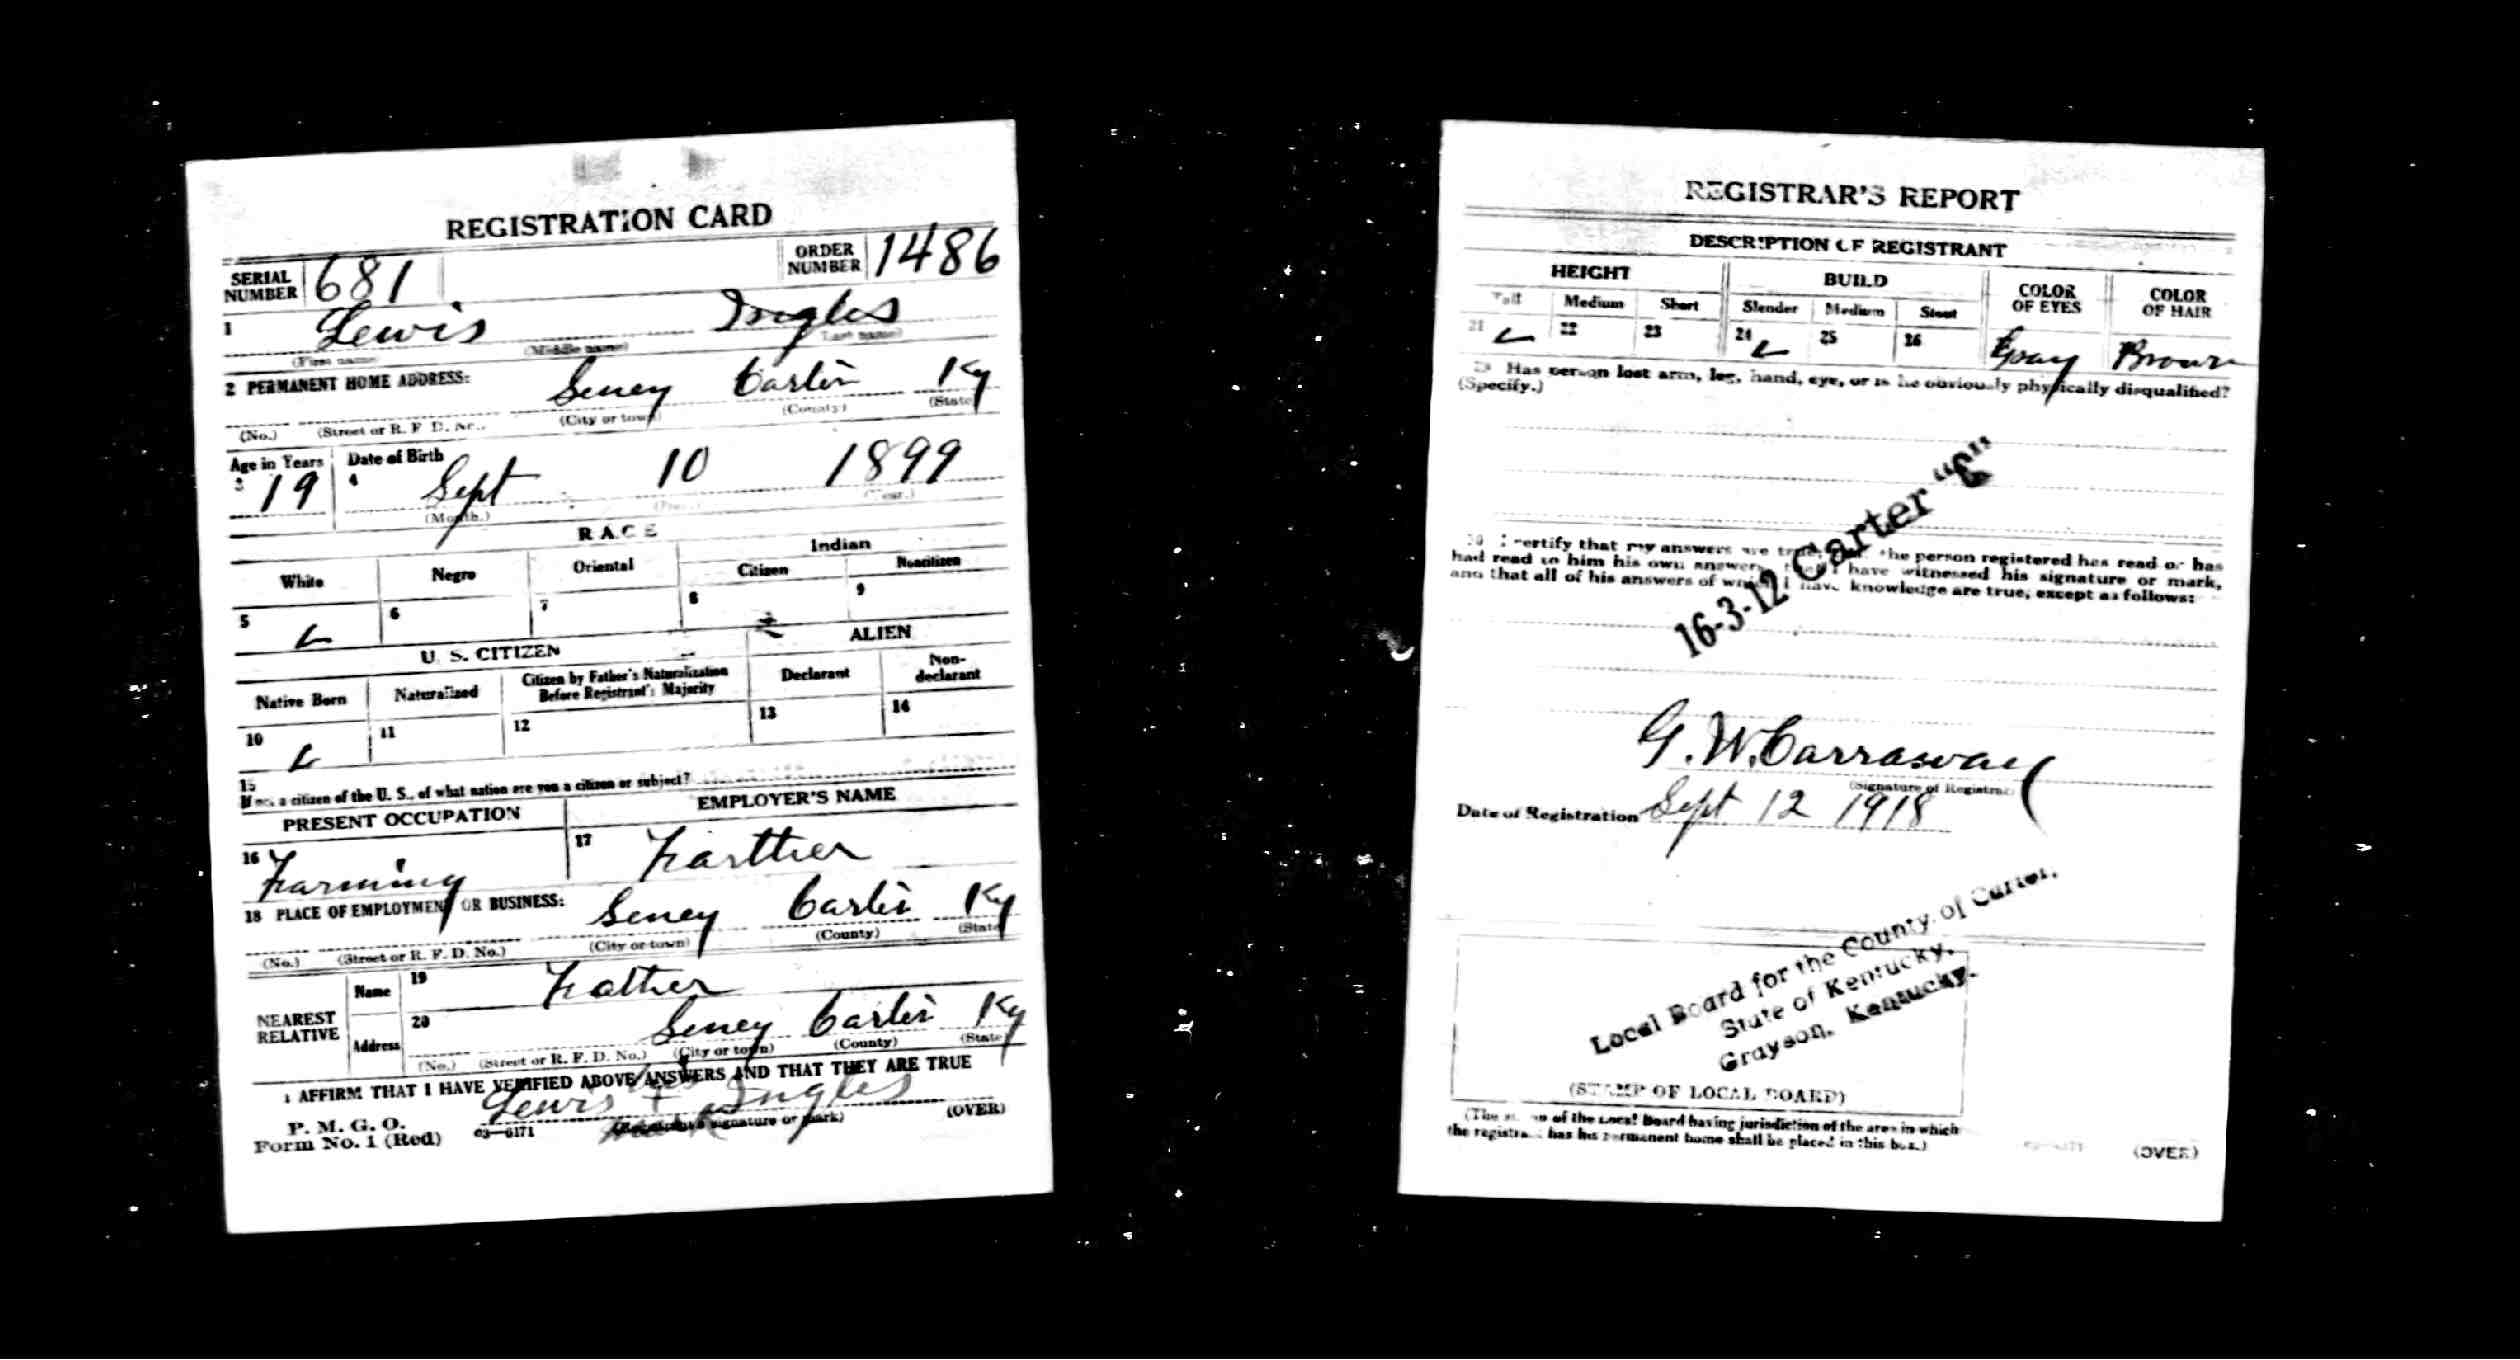 REGISTRATION CARD
SERIAL NUMBER 681 ORDER NUMBER 1486
1 Lewis Ingles
(First name) (Middle name) (Last name)
2 PERMANENT HOME ADDRESS:
Seney Carter Ky
(No.) (Street or R. F. D. No.) (City or town) (County) (State)
Age in Years Date of Birth
3 19 4 Sept 10 1899
(Month.) (Day.) (Year.)
RACE
White Negro Oriental Indian
Citizen Noncitizen
5 6 7 8 9
U. S. CITIZEN ALIEN
Native Born Naturalized Citizen by Father's Naturalization Before Registrant's Majority Declarant Non-declarant
10 11 12 13 14
15
If not a citizen of the U. S., of what nation are you a citizen or subject?
PRESENT OCCUPATION EMPLOYER'S NAME
16 Farming 17 Farther
18 PLACE OF EMPLOYMENT OR BUSINESS:
Seney Carter Ky
(No.) (Street or R. F. D. No.) (City or town) (County) (State)
NEAREST RELATIVE Name 19 Father
Address 20 Seney Carter Ky
(No.) (Street or R. F. D. No.) (City or town) (County) (State)
I AFFIRM THAT I HAVE VERIFIED ABOVE ANSWERS AND THAT THEY ARE TRUE
his
Lewis + Ingles
mark
P. M. G. O.
Form No. 1 (Red) 03—6171 (Registrant's signature or mark) (OVER)
REGISTRAR'S REPORT
DESCRIPTION OF REGISTRANT
HEIGHT BUILD COLOR OF EYES COLOR OF HAIR
Tall Medium Short Slender Medium Stout
21 22 23 24 25 26 Gray Brown
29 Has person lost arm, leg, hand, eye, or is he obviously physically disqualified?
(Specify.)
16-3-12 Carter "C"
30 I certify that my answers are true; that the person registered has read or has
had read to him his own answers; that I have witnessed his signature or mark,
and that all of his answers of which I have knowledge are true, except as follows:
G. W. Carraway
(Signature of Registrar)
Date of Registration Sept 12 1918
Local Board for the County of Carter,
State of Kentucky,
Grayson, Kentucky.
(STAMP OF LOCAL BOARD)
(The stamp of the Local Board having jurisdiction of the area in which
the registrant has his permanent home shall be placed in this box.)
03—6171 (OVER)